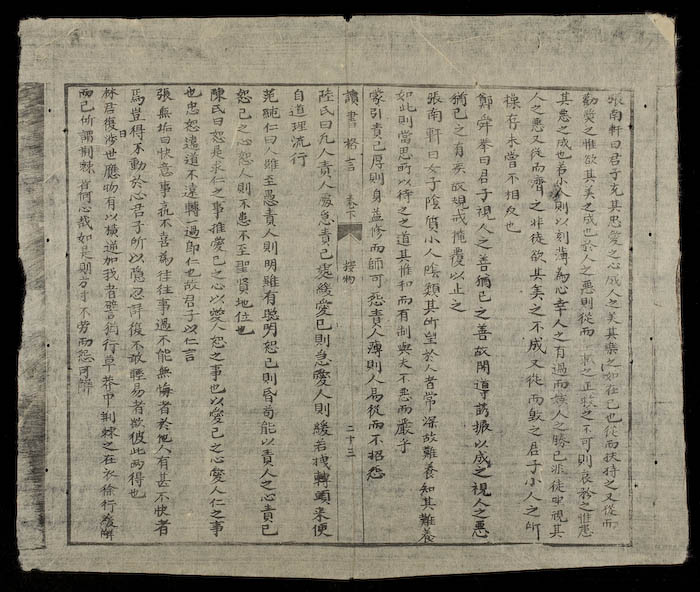 張南軒曰君子充其忠愛之心成人之美其樂之如在己也從而扶持之又從而
勸奬之惟欲其美之成也於人之惡則從而正救之不可則哀矜之惟恐
其惡之成也若小人則以刻薄為心幸人之有過而嫉人之勝己非徒坐視其
人之惡又從而濟之非徒欲其美之不成又從而毀之君子小人之所
操存未嘗不相反也
鄭舜舉曰君子視人之善猶己之善故開導誘掖以成之視人之惡
猶己之有疾故規戒掩覆以止之
張南軒曰女子陰質小人陰類其所望於人者常深故難養知其難養
如此則當思所以待之之道其惟和而有制與夫不惡而嚴乎
蒙引責己厚則身益修而師可 責人薄則人易從而不招怨
讀書格言 卷下 接物 二十三
陸氏曰凡人責人處急責己處緩愛己則急愛人則緩若拽轉頭來便
自道理流行
范純仁曰人雖至愚責人則明雖有聰明恕己則昏苟能以責人之心責己
恕己之心恕人則不患不至聖賢地位也
陳氏曰恕是求仁之事推愛己之心以愛人恕之事也以愛己之心愛人仁之事
也忠恕違道不遠轉過即仁也故君子以仁言
張無垢曰快意事孰不喜為往往事過不能無悔者於他人有甚不快者
焉豈得不動於心君子所以隱忍詳復不敢輕易者欲彼此兩得也
林君復曰涉世應物有以橫逆加我者譬猶行草莽中荊棘之在衣徐行緩解
而已所謂荊棘者何心哉如是則方寸不勞而怨可解